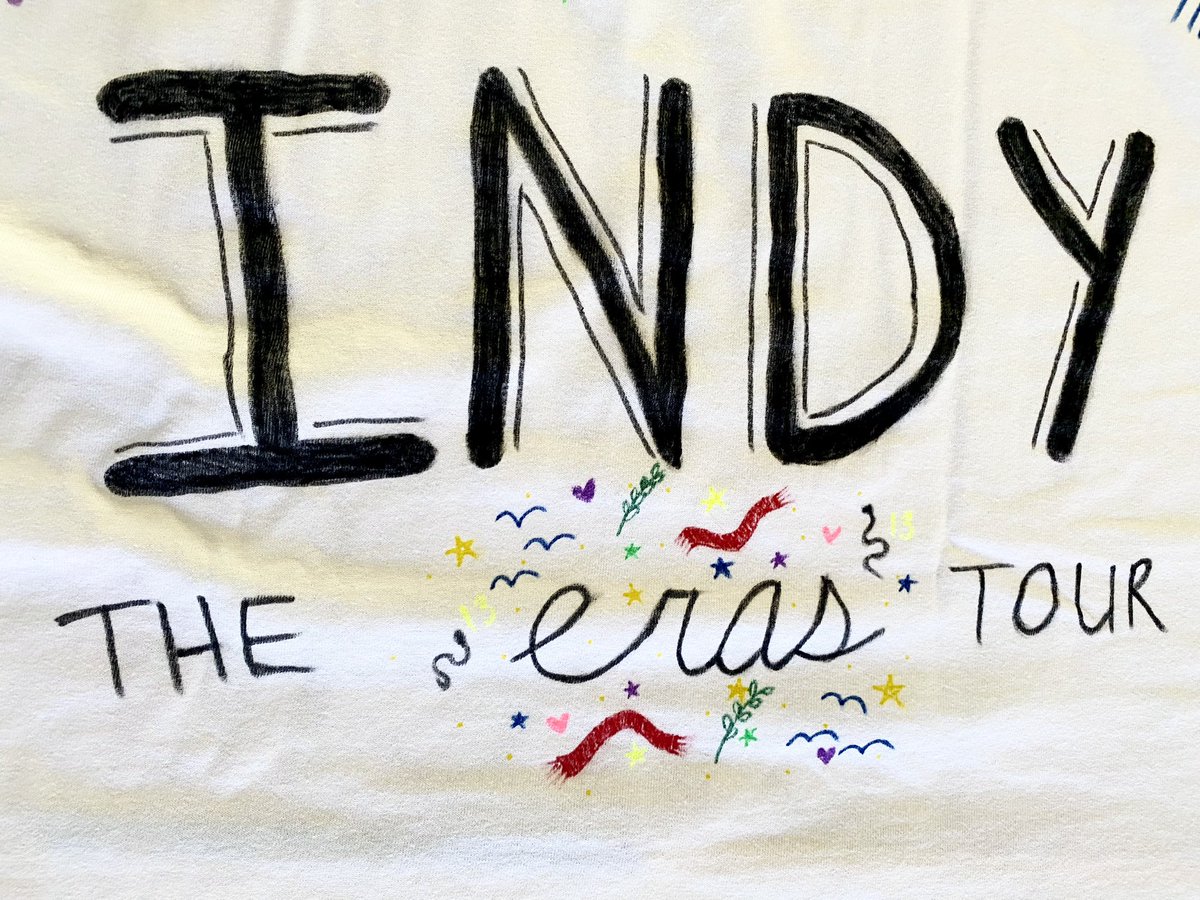 INDY
13
13
THE eras TOUR